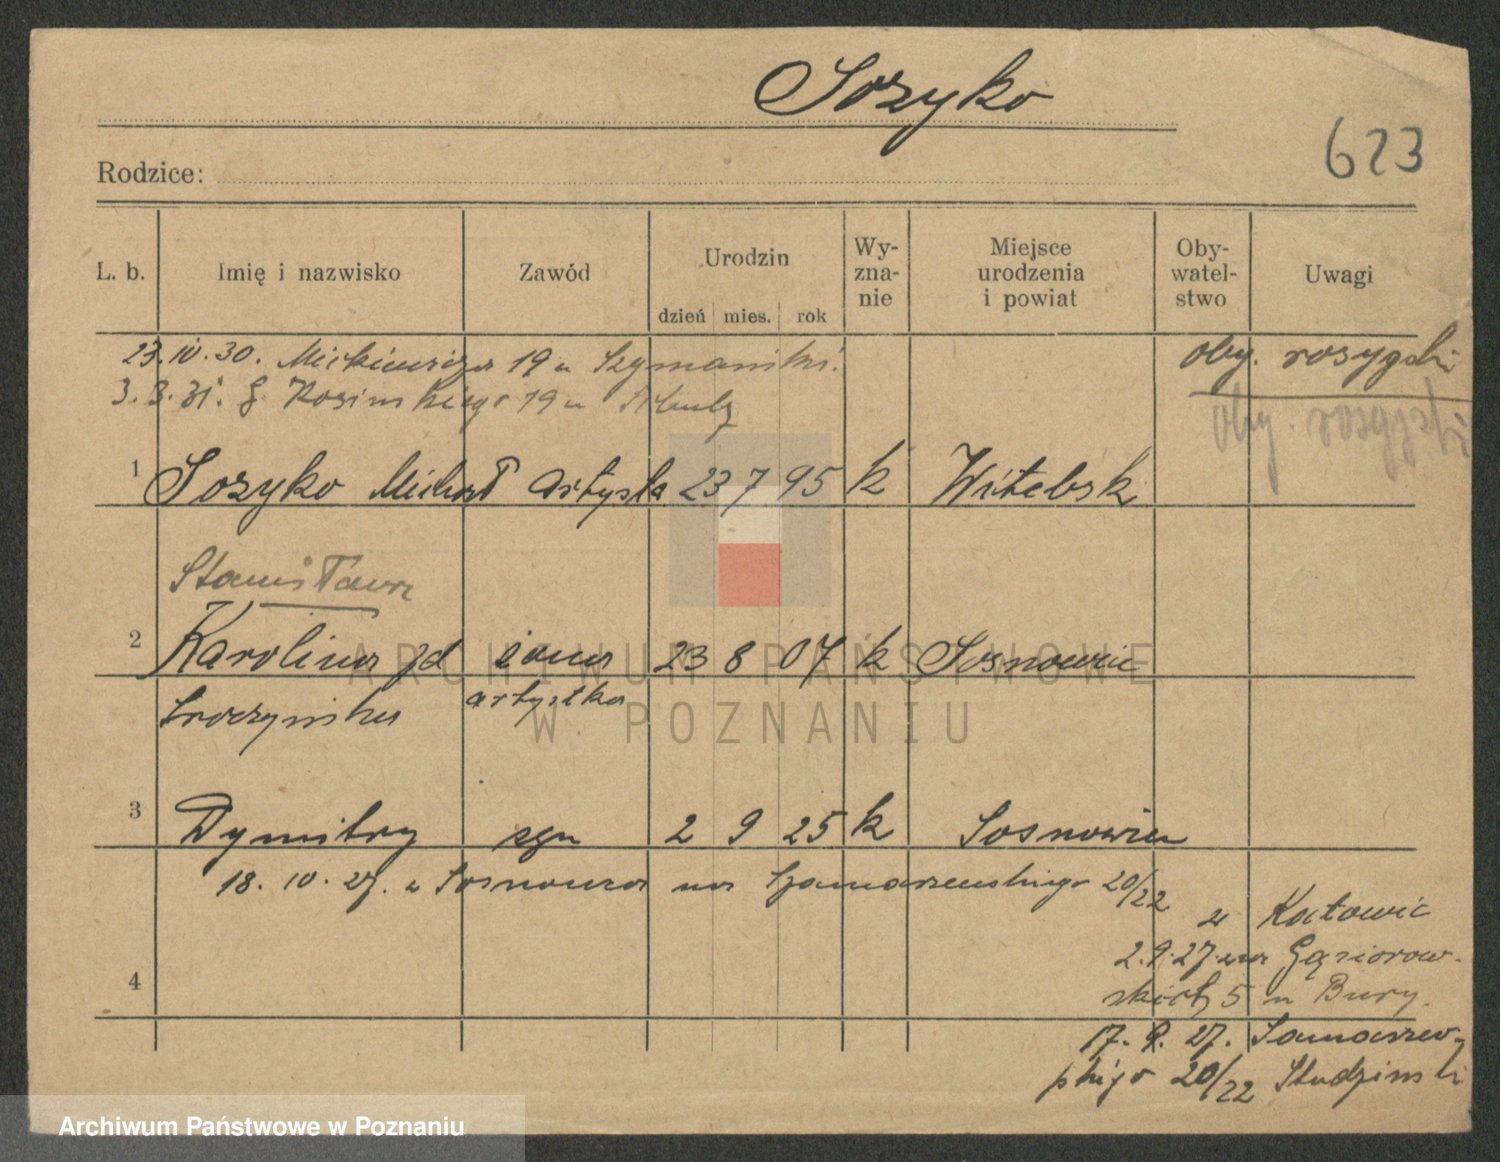 Sozyko
623
Rodzice:
L. b. Imię i nazwisko Zawód Urodzin dzień mies. rok Wy-zna-nie Miejsce urodzenia i powiat Oby-watel-stwo Uwagi
23.IV.30. Mickiewicza 19 u Szymański.
oby. rosyjski
3.3.31. G. Kosińskiego 19 u
oby.
1 Sozyko Michał artysta 23 7 95 k Witebsk
Stanisława
2 Karolina zd żona 23 8 07 k Sosnowic
artystka
3 Dymitry syn 2 9 25 k Sosnowiec
18.10.27. z Sosnowca na Szamarzewskiego 20/22
z Katowic
2.9.27. na Gąsiorow-
4
skich 5 u Bury.
17.9.27. Samarzew-
skiego 20/22 Studziński
ARCHIWUM PAŃSTWOWE
W POZNANIU
Archiwum Państwowe w Poznaniu